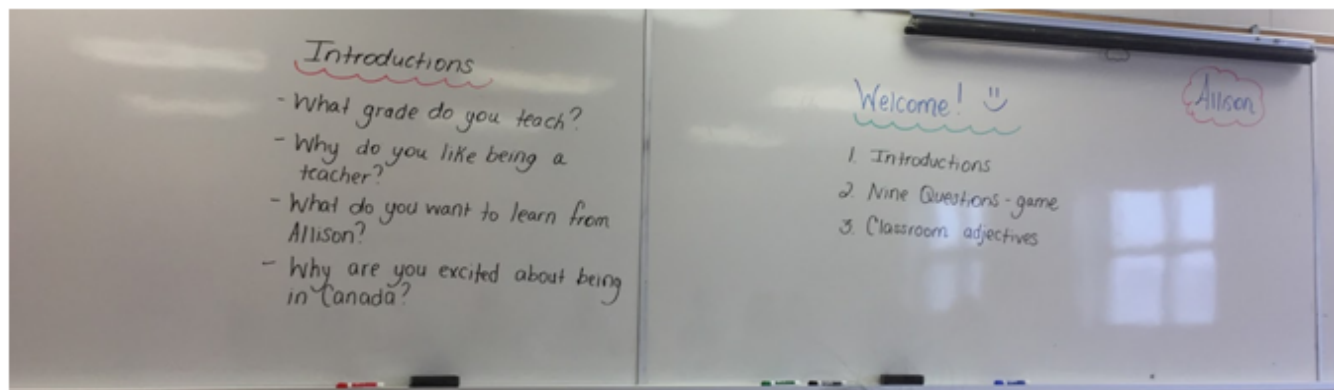 Introductions
- What grade do you teach?
- Why do you like being a
teacher?
- What do you want to learn from
Allison?
- Why are you excited about being
in Canada?
Welcome!
Allison
1. Introductions
2. Nine Questions - game
3. Classroom adjectives